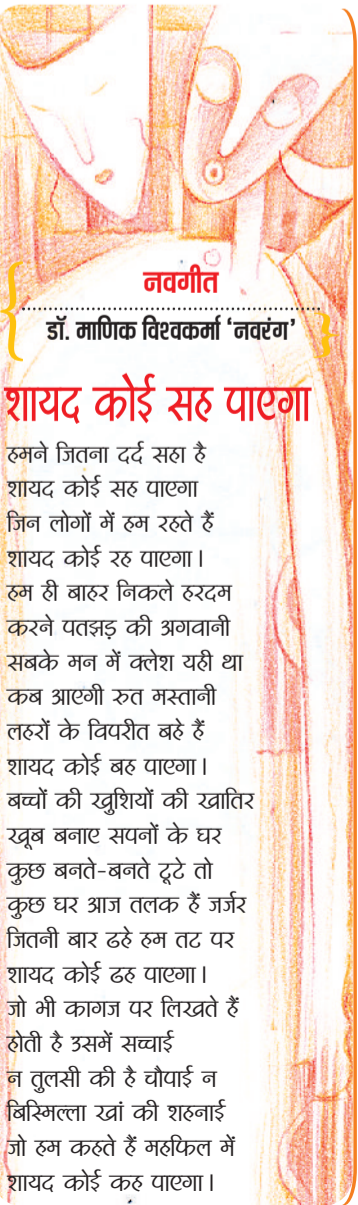 नवगीत
डॉ. माणिक विश्वकर्मा ‘नवरंग’
शायद कोई सह पाएगा
हमने जितना दर्द सहा है
शायद कोई सह पाएगा
जिन लोगों में हम रहते हैं
शायद कोई रह पाएगा।
हम ही बाहर निकले हरदम
करने पतझड़ की अगवानी
सबके मन में क्लेश यही था
कब आएगी रुत मस्तानी
लहरों के विपरीत बहे हैं
शायद कोई बह पाएगा।
बच्चों की खुशियों की खातिर
खूब बनाए सपनों के घर
कुछ बनते-बनते टूटे तो
कुछ घर आज तलक हैं जर्जर
जितनी बार ढहे हम तट पर
शायद कोई ढह पाएगा।
जो भी कागज पर लिखते हैं
होती है उसमें सच्चाई
न तुलसी की है चौपाई न
बिस्मिल्ला खां की शहनाई
जो हम कहते हैं महफिल में
शायद कोई कह पाएगा।